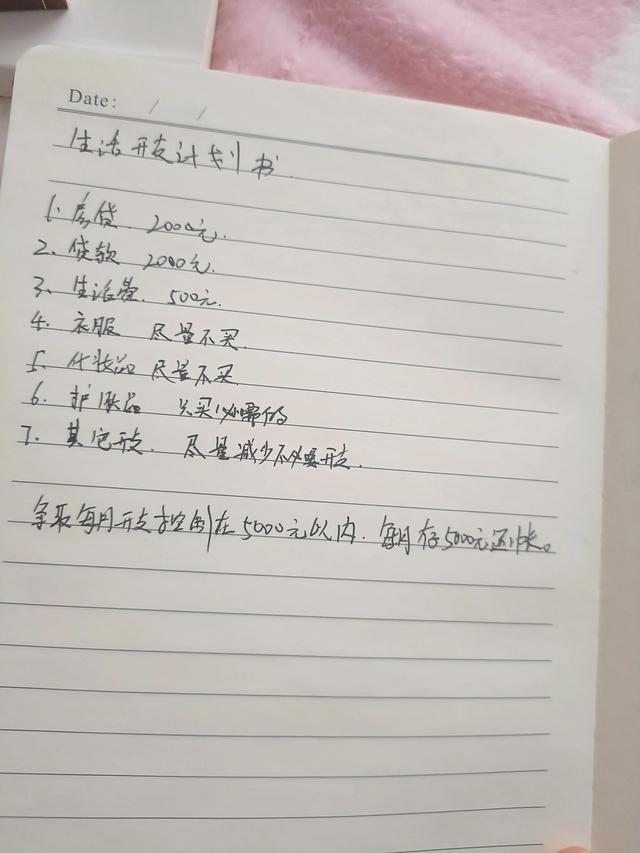 Date: / /
生活开支计划书.
1. 房贷. 2000元.
2. 贷款 2000元.
3. 生活费. 500元.
4. 衣服 尽量不买.
5. 化妆品 尽量不买.
6. 护肤品 只买必需的
7. 其它开支. 尽量减少不必要开支.
争取每月开支控制在5000元以内. 每月存5000元还帐。